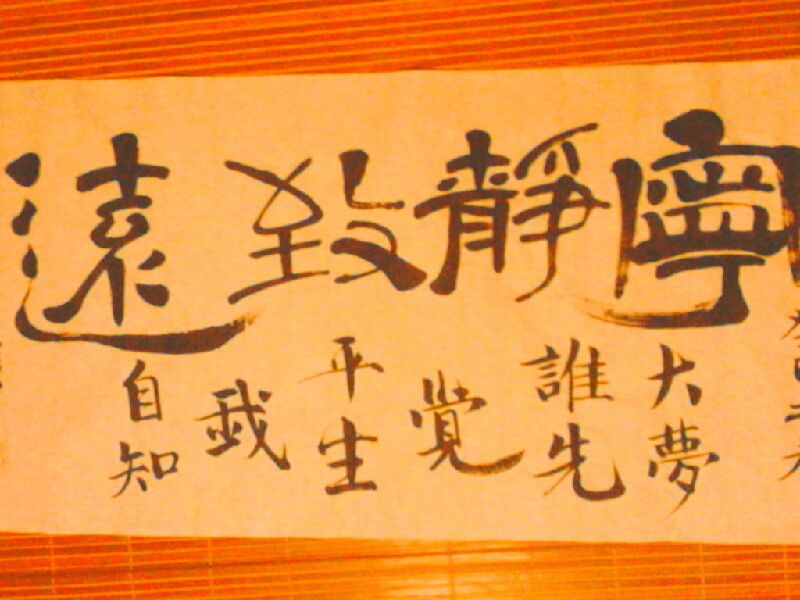 寧靜致遠
大夢
誰先
覺
平生
我
自知